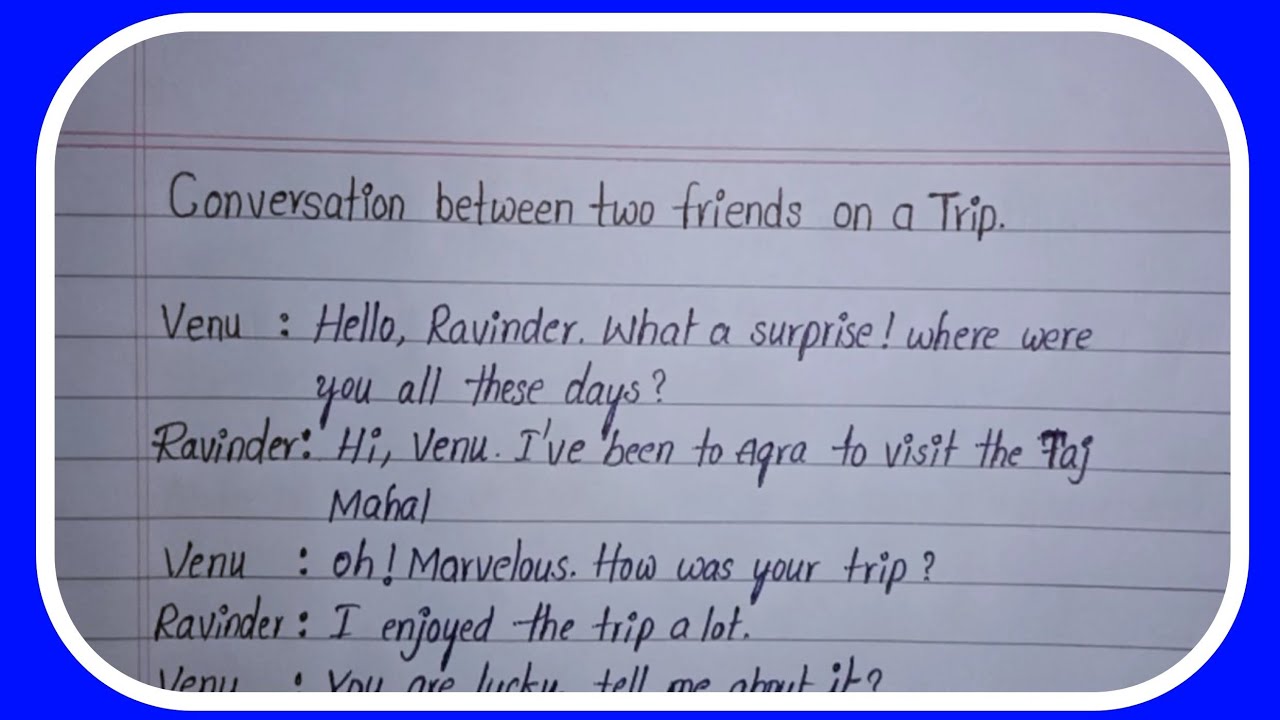 Conversation between two friends on a Trip.
Venu : Hello, Ravinder. What a surprise! where were
you all these days?
Ravinder: Hi, Venu. I've been to Agra to visit the Taj
Mahal
Venu : oh! Marvelous. How was your trip?
Ravinder: I enjoyed the trip a lot.
Venu : You are lucky, tell me about it?